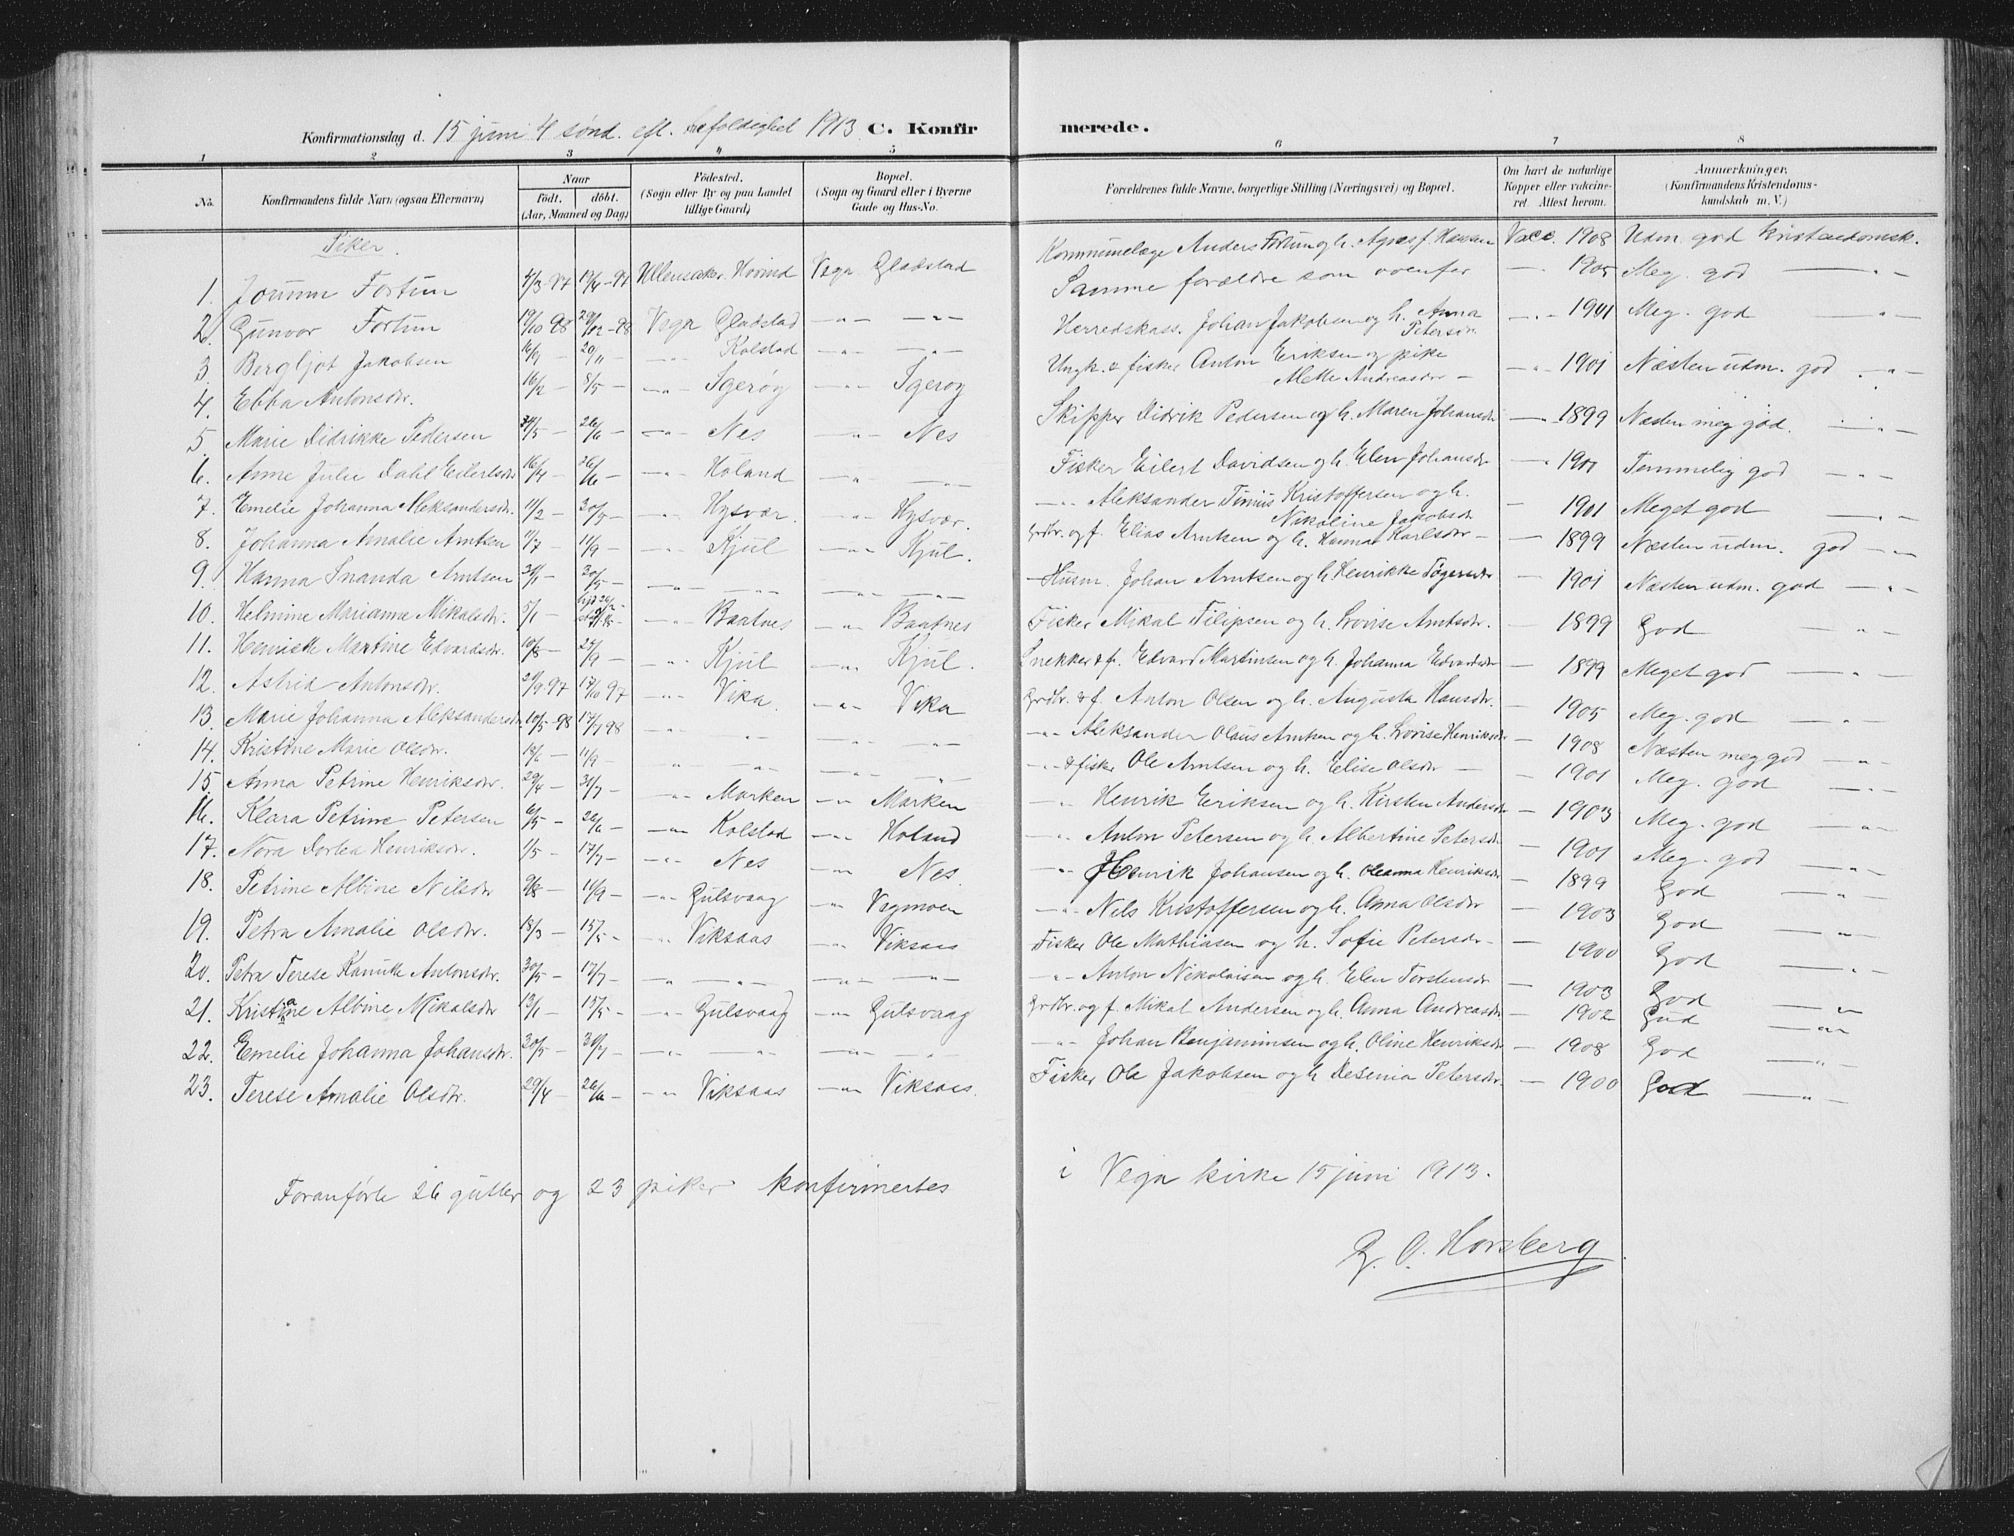 Konfirmationsdag d. 15 juni 4 sønd. eft. trefoldighet 1913 C. Konfirmerede.
1 2 3 4 5 6 7 8
No. Konfirmandens fulde Navn (ogsaa Efternavn) Naar födt. döbt. (Aar, Maaned og Dag) Födested. (Sogn eller By og paa Landet tillige Gaard) Bopæl. (Sogn og Gaard eller i Byerne Gade og Hus-No. Forældrenes fulde Navne, borgerlige Stilling (Næringsvei) og Bopæl. Om havt de naturlige Kopper eller vakcineret. Attest herom. Anmærkninger. (Konfirmandens Kristendomskundskab m. V.)
Piker.
1. Jorunn Fortun 4/3-97 19/4-97 Ullensaker Hovind Vega Gladstad Kommunelæge Anders Fortun og h. Agnes f. Hansen Vacc. 1908 Udm. god kristendomsk.
2. Gunvor Fortun 19/10-98 29/12-98 Vega Gladstad -"- -"- Samme forældre som ovenfor -"- 1905 Meg. god -"-
3 Bergljot Jakobsen 16/9 - 20/11 - -"- Kolstad -"- -"- Herredskass. Johan Jakobsen og h. Anna Petersdr. -"- 1901 Meg. god -"-
4. Ebba Antonsdr. 16/2 - 8/5 - -"- Igerøy -"- Igerøy Ungk. & fisker Anton Eriksen og pike Mette Andreasdr - -"- 1901 Næsten udm. god -"-
5 Marie Didrikke Pedersen 24/5 - 26/6 - -"- Nes -"- Nes Skipper Didrik Pedersen og h. Maren Johansdr - 1899 Næsten meg god. -"-
6. Anne Julie Dahl Eilertsdr 16/4 - 26/6 - -"- Holand -"- -"- Fisker Eilert Davidsen og h. Elen Johansdr - 1901 Temmelig god -"-
7. Emelie Johanna Aleksandersdr. 11/2 - 20/5 - -"- Hysvær. -"- Hysvær. -"- Aleksander Tinius Kristoffersen og h. Nikoline Jakobsdr - 1901 Meget god -"-
8. Johanna Amalie Arntsen 11/7 11/9 - -"- Kjul -"- Kjul. Grdbr. og f. Elias Arntsen og h. Hanna Karlsdr - - 1899 Næsten udm. god -"-
9. Hanna Inanda Arntsen 31/1 - 30/5 - -"- -"- -"- -"- Husm. Johan Arntsen og h. Henrikke Jögersdr - 1901 Næsten udm. god -"-
10. Helmine Marianna Mikalsdr. 5/1 - -"- Baatnes -"- Baatnes Fisker Mikal Filipsen og h. Lovise Arntsdr. - 1899 God -"-
11. Henrikke Martine Edvardsdr. 10/8 - 25/9 - -"- Kjul -"- Kjul. Snekker & fi. Edvard Martinsen og h. Johanna Edvardsdr - 1899 Meget god -"-
12. Astrid Antonsdr. 29/9 97 17/10 97 -"- Vika. -"- Vika Grdbr. & f. Anton Olsen og h. Augusta Hansdr. - 1905 Meg. god -"-
13. Marie Johanna Aleksandersdr 10/5-98 17/7 98 -"- -"- -"- -"- -"- Aleksander Olaus Arntsen og h. Lovise Henriksdr - 1908 Næsten meg god -"-
14. Kristine Marie Olsdr. 18/6 - 11/9 - " -"- -"- -"- -"- & fisker Ole Arntsen og h. Elise Olsdr - - 1901 Meg. god -"-
15. Anna Petrine Henriksdr. 29/4 - 31/7 - -"- Marken -"- Marken -"- Henrik Eriksen og h. Kirsten Andersdr - 1903 Meg. god -"-
16. Klara Petrine Petersen 6/5 - 26/6 - -"- Kolstad -"- Holand -"- Anton Petersen og h. Albertine Petersdr - 1901 Meg. god -"-
17. Nora Dorlea Henriksdr. 1/5 - 17/7 - -"- Nes -"- Nes. -"- Henrik Johansen og h. Oleanna Henriksdr - 1899 God -"-
18. Petrine Albine Nilsdr 9/8 - 11/9 - -"- Gulsvaag -"- Vegmoen -"- Nils Kristoffersen og h. Anna Olsdr - 1903 God -"-
19. Petra Amalie Olsdr. 18/3 - 15/5 - -"- Viksaas -"- Viksaas Fisker Ole Mathiasen og h. Sofie Petersdr - - 1900 God -"-
20. Petra Terese Kanutte Antonsdr. 30/5 - 17/7 - -"- -"- -"- -"- -"- Anton Nikolaisen og h. Elen Torstensdr - 1903 God -"-
21. Kristiane Albine Mikalsdr 13/1 - 15/5 - -"- Gulsvaag -"- Gulsvaag Grdbr. og f. Mikal Andersen og h. Anna Andreasdr - 1902 God -"-
22. Emelie Johanna Johansdr. 20/5 - 31/7 - -"- -"- -"- -"- -"- Johan Benjaminsen og h. Oline Henriksdr - 1908 God -"-
23. Terese Amalie Olsdr. 29/4 - 26/6 - -"- Viksaas -"- Viksaas. Fisker Ole Jakobsen og h Desenia Petersdr. - 1900 God -"-
Foranførte 26 gutter og 23 piker konfirmertes i Vega kirke 15 juni 1913.
G. O. Horsberg